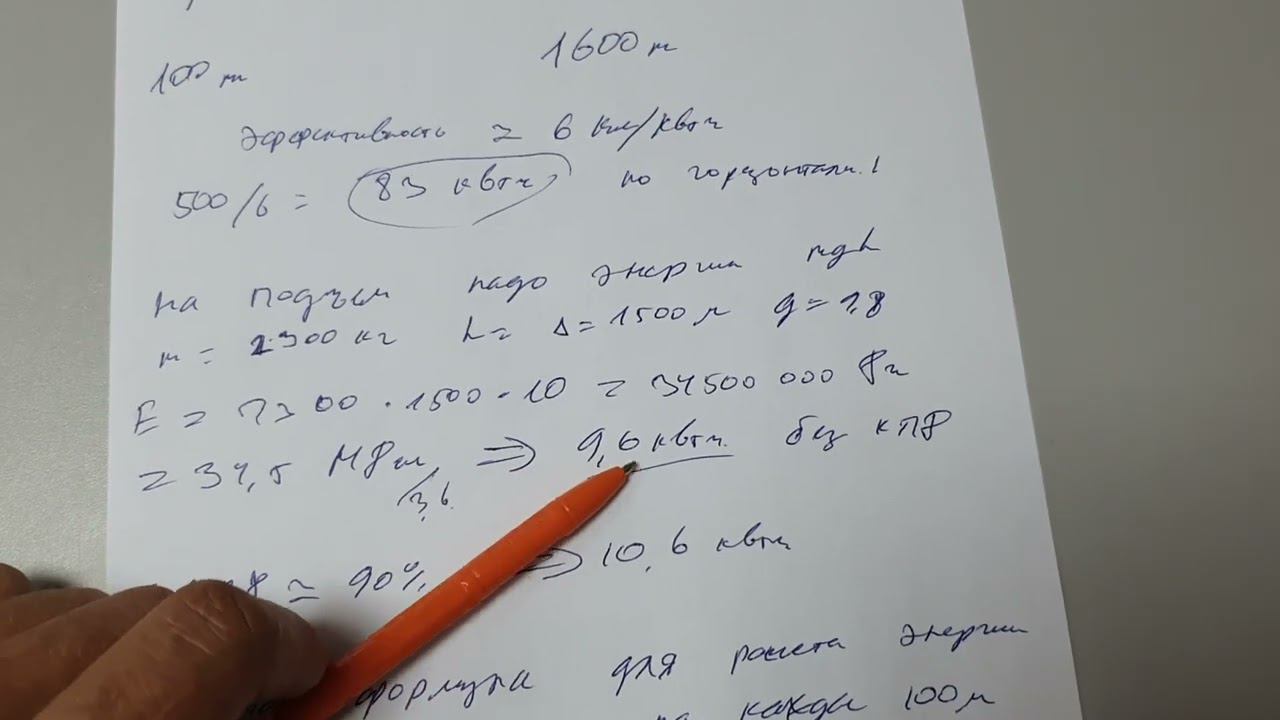 1600 м
100 м
Эффективность ≃ 6 км/квтч
500/6 = 83 квтч по горизонтали!
на подъем надо энергии mgh
m = 2300 кг h = Δ = 1500 м g = 9,8
E = 2300 · 1500 · 10 = 34500 000 Дж
= 34,5 МДж ⇒ 9,6 квтч. без КПД
/3,6.
≃ 90% ⇒ 10,6 квтч
формула для расчета энергии
на кажды 100 м